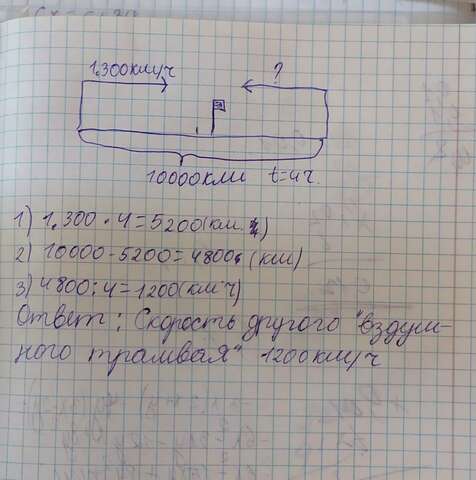 1,300км/ч
?
10000км t=4ч.
1) 1,300 · 4 = 5200 (км.ч)
2) 10000-5200=4800 (км)
3) 4800:4=1200(км ч)
Ответ: Скорость другого "воздуш-
ного трамвая" 1200км/ч